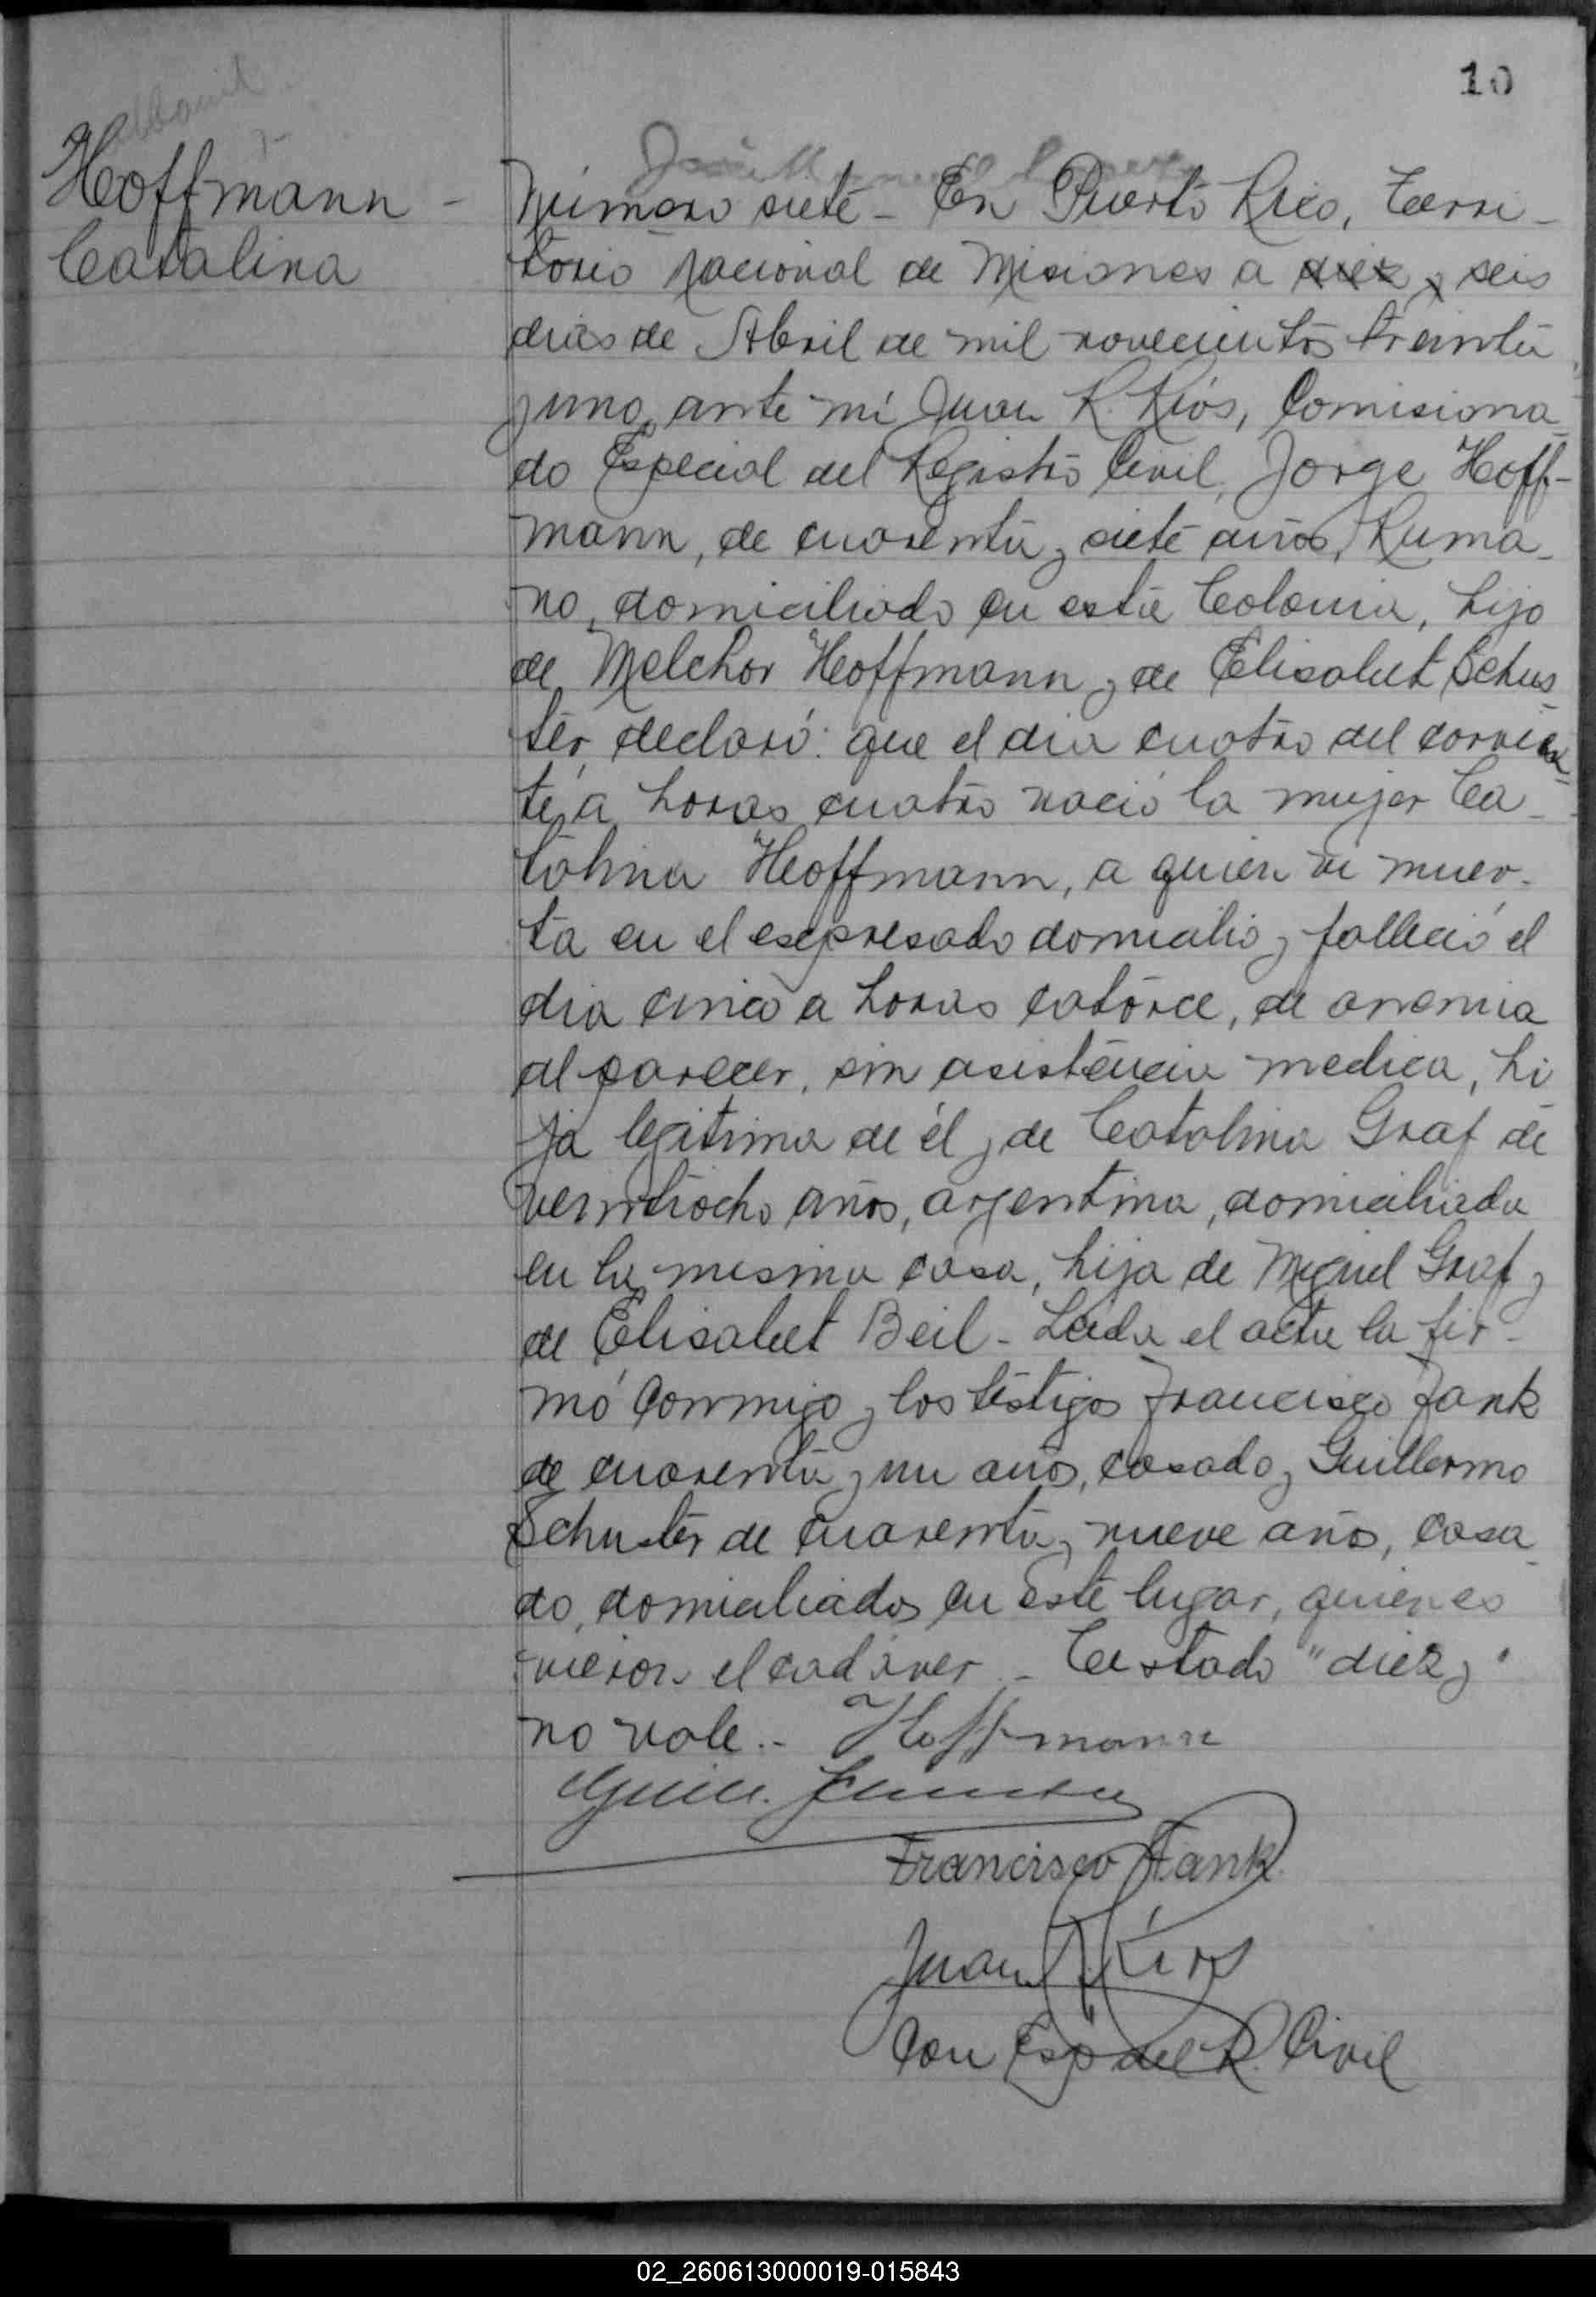 10
Hoffmann -
Catalina
Número siete - En Puerto Rico, Terri-
torio Nacional de Misiones a diez y seis
dias de Abril de mil novecientos treinta
y uno, ante mi Juan R. Rios, Comisiona-
do Especial del Registro Civil, Jorge Hoff-
mann, de cuarenta y siete años, Ruma-
no, domiciliado en esta Colonia, hijo
de Melchor Hoffmann y de Elisabet Schus-
ter, declaró: que el dia cuatro del corrien-
te, a horas cuatro nació la mujer Ca-
talina Hoffmann, a quien vi muer-
ta en el expresado domicilio y falleció el
dia cinco a horas catorce, de anemia
al parecer, sin asistencia medica, hi
ja legitima de él y de Catalina Graf de
veintiocho años, argentina, domiciliada
en la misma casa, hija de Miguel Graf y
de Elisabet Beil - Leida el acta la fir-
mó conmigo y los testigos Francisco Fank
de cuarenta y un años, casado y Guillermo
Schuster de cuarenta y nueve años, casa
do, domiciliados en este lugar, quienes
vieron el cadáver - Testado "diez y"
no vale.- Hoffmann
Guill. Schuster
Francisco Fank
Juan R. Rios
Com Esp del R. Civil
02_260613000019-015843